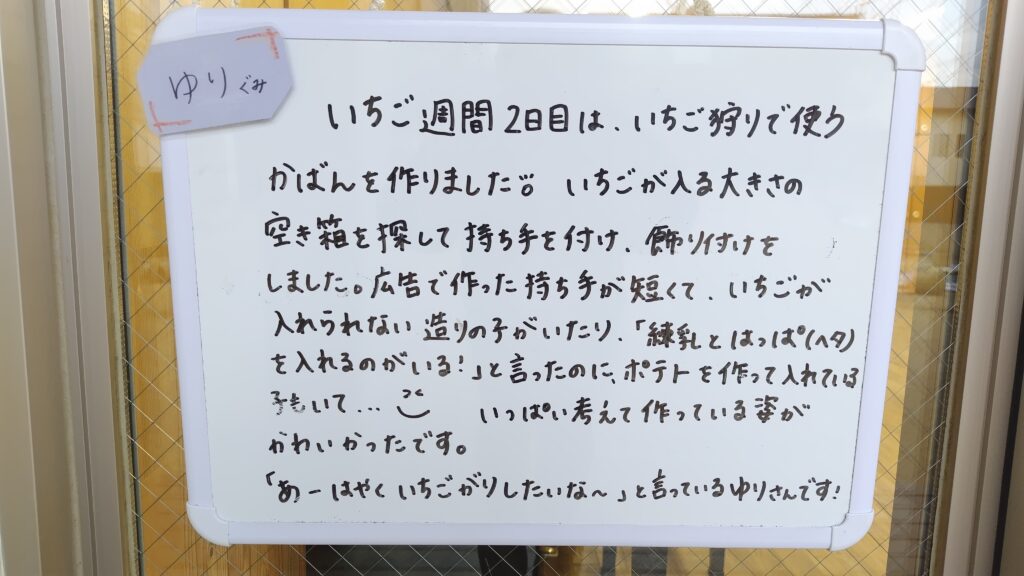 ゆりぐみ
いちご週間2日目は、いちご狩りで使う
かばんを作りました。いちごが入る大きさの
空き箱を探して持ち手を付け、飾り付けを
しました。広告で作った持ち手が短くて、いちごが
入れられない造りの子がいたり、「練乳とはっぱ(ヘタ)
を入れるのがいる!」と言ったのに、ポテトを作って入れている
子もいて… いっぱい考えて作っている姿が
かわいかったです。
「あーはやくいちごがりしたいな〜」と言っているゆりさんです!